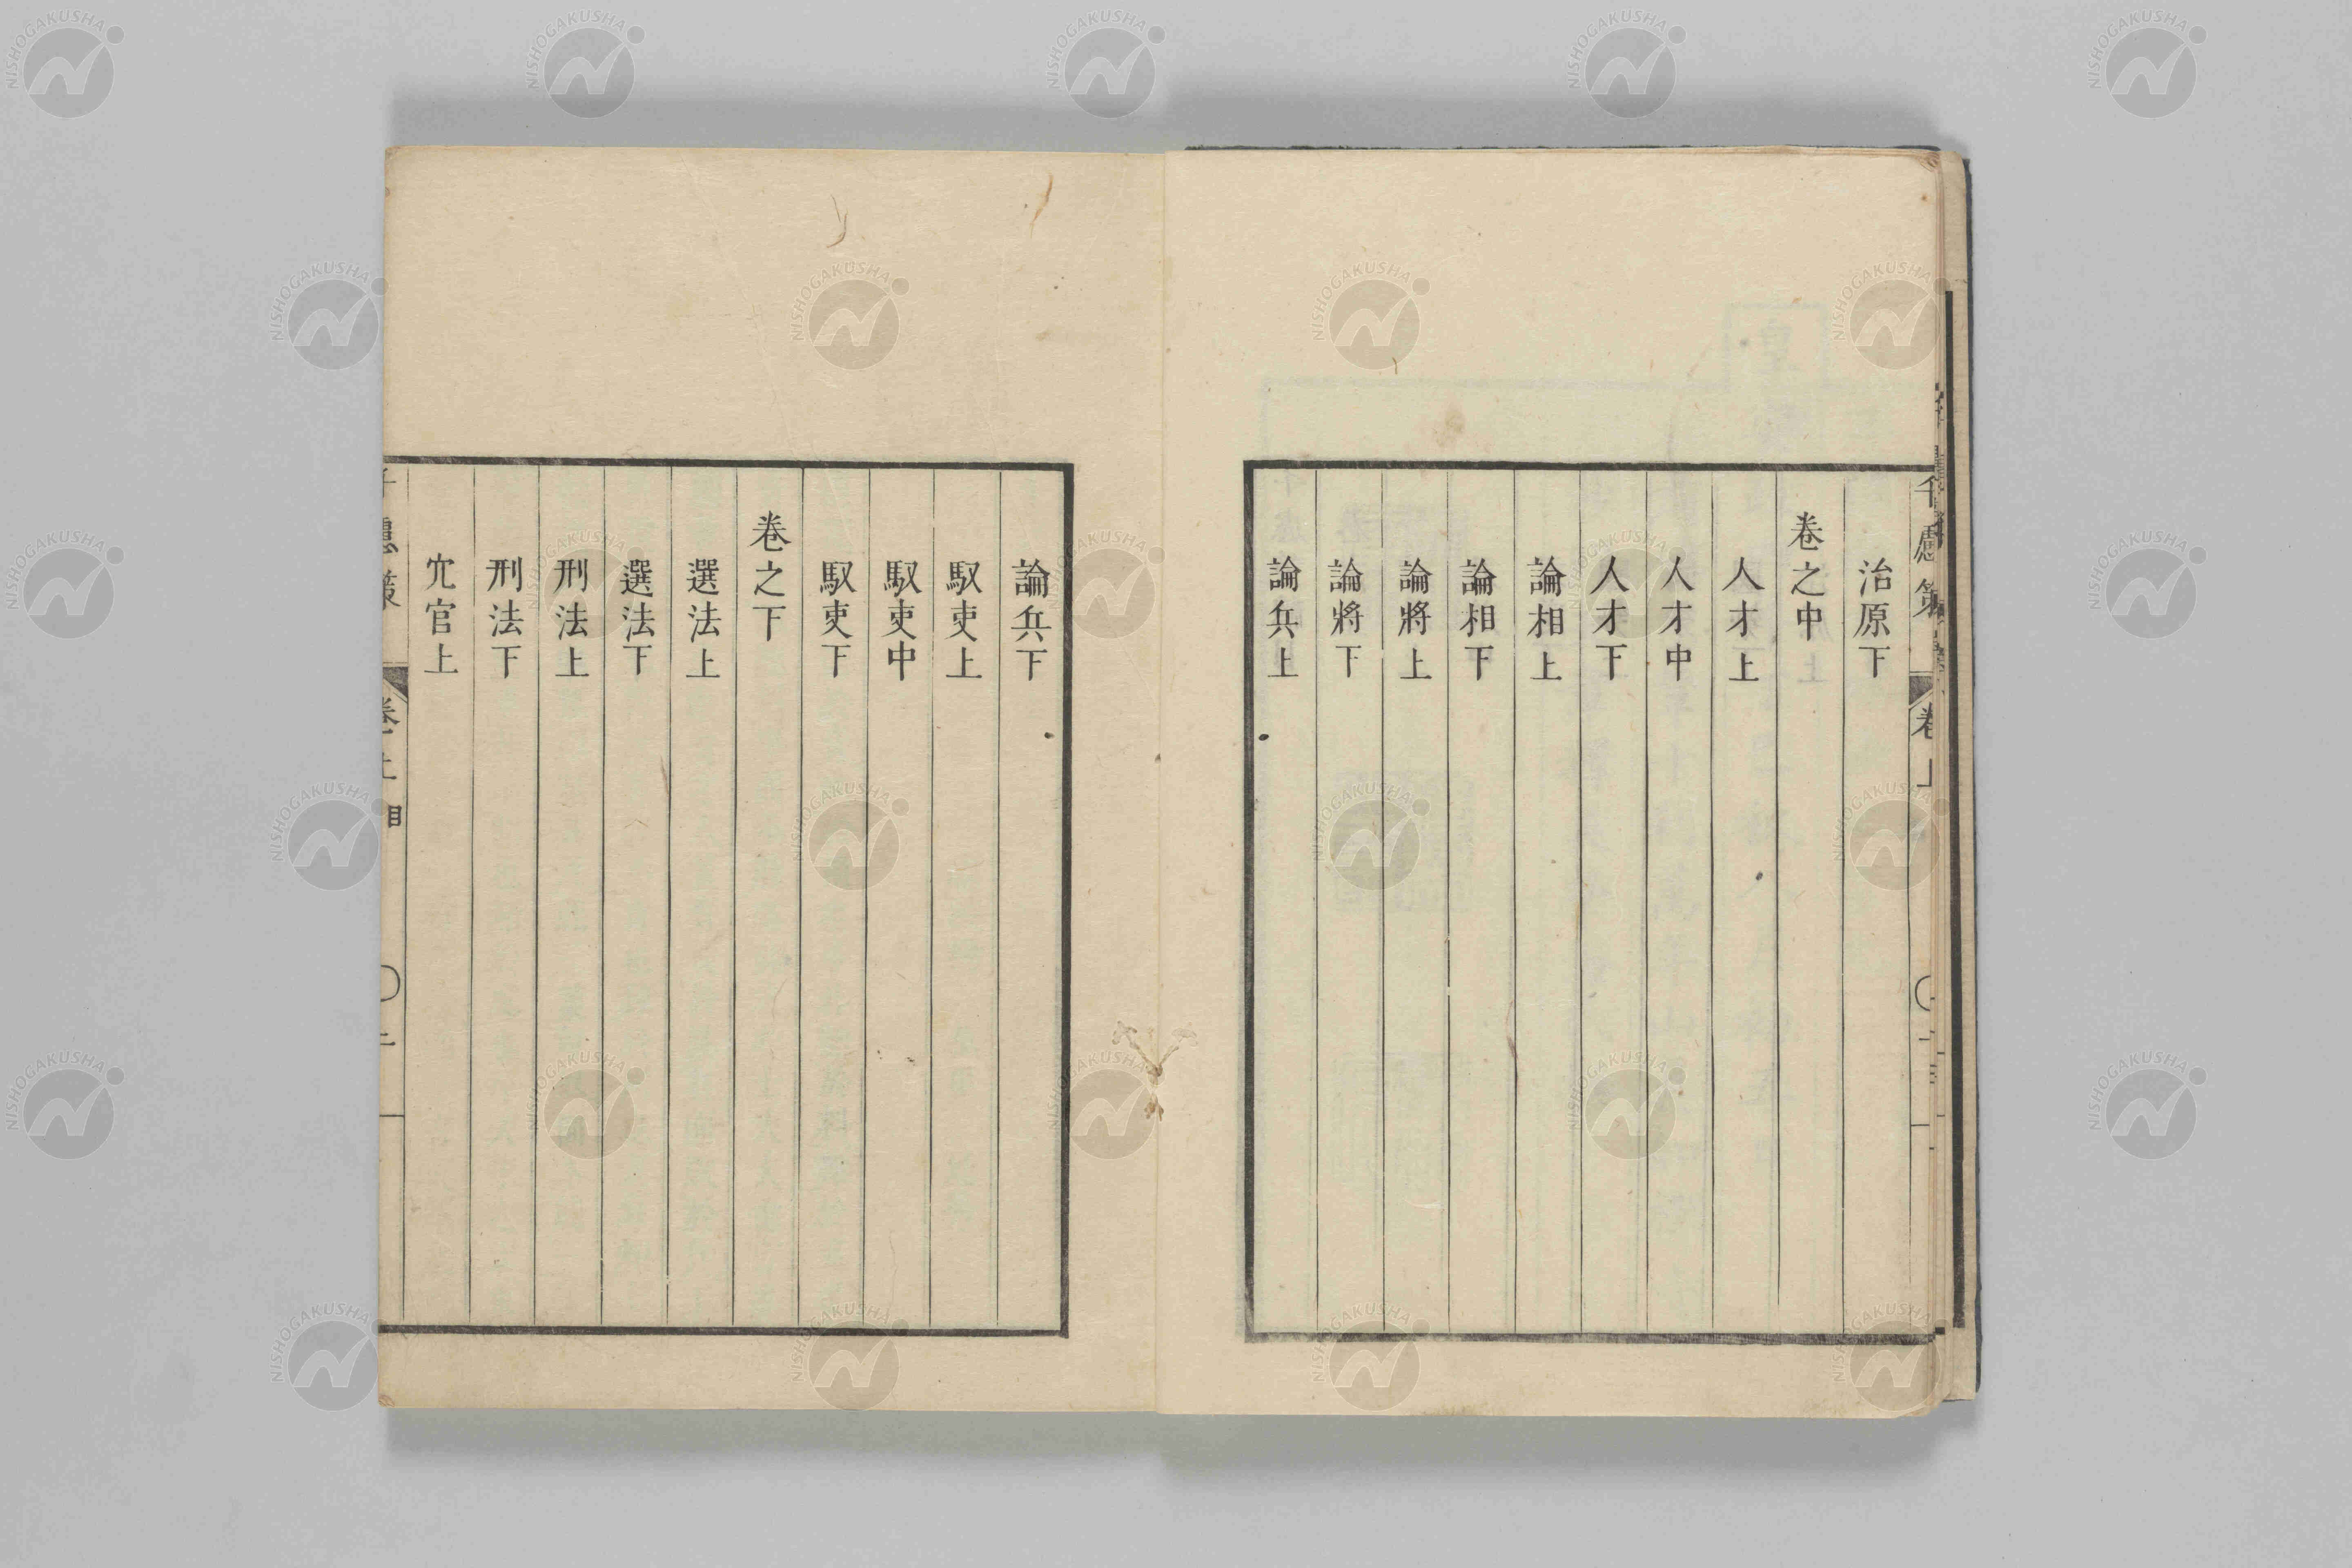 千慮策
卷上
治原下
卷之中
人才上
人才中
人才下
論相上
論相下
論將上
論將下
論兵上
論兵下
馭吏上
馭吏中
馭吏下
卷之下
選法上
選法下
刑法上
刑法下
冗官上
NISHOGAKUSHA